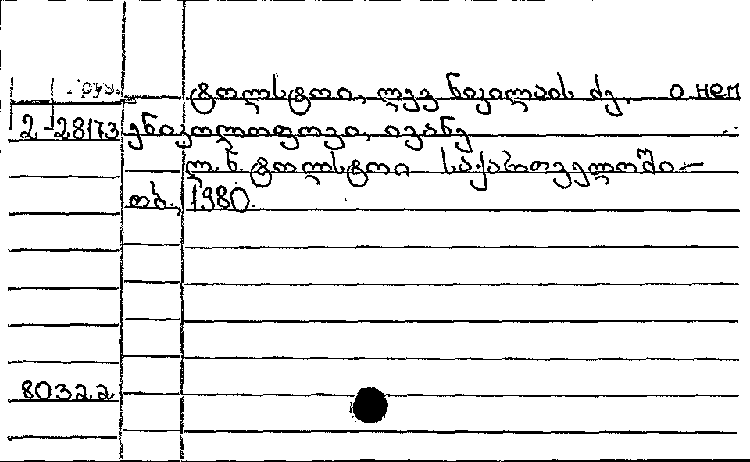 Груз. ტოლსტოი, ლევ ნიკოლაის ძე. о нем
2-28173 ენიკოლოფოვი, ივანე
ლ. ნ. ტოლსტოი საქართველოში.—
თბ., 1980.
8032.2